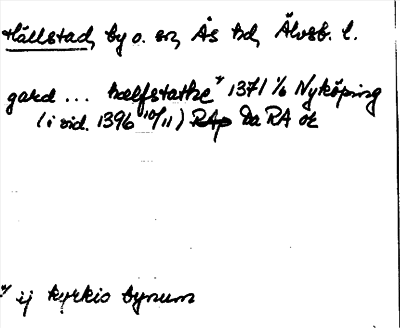 Hällstad, by o. sn, Ås hd, Älvsb. l.
gard ... hælfstathe x) 1371 1/6 Nyköping
(i vid. 1396 10/11) RAp Da RA or
x) ij kyrkio bynum